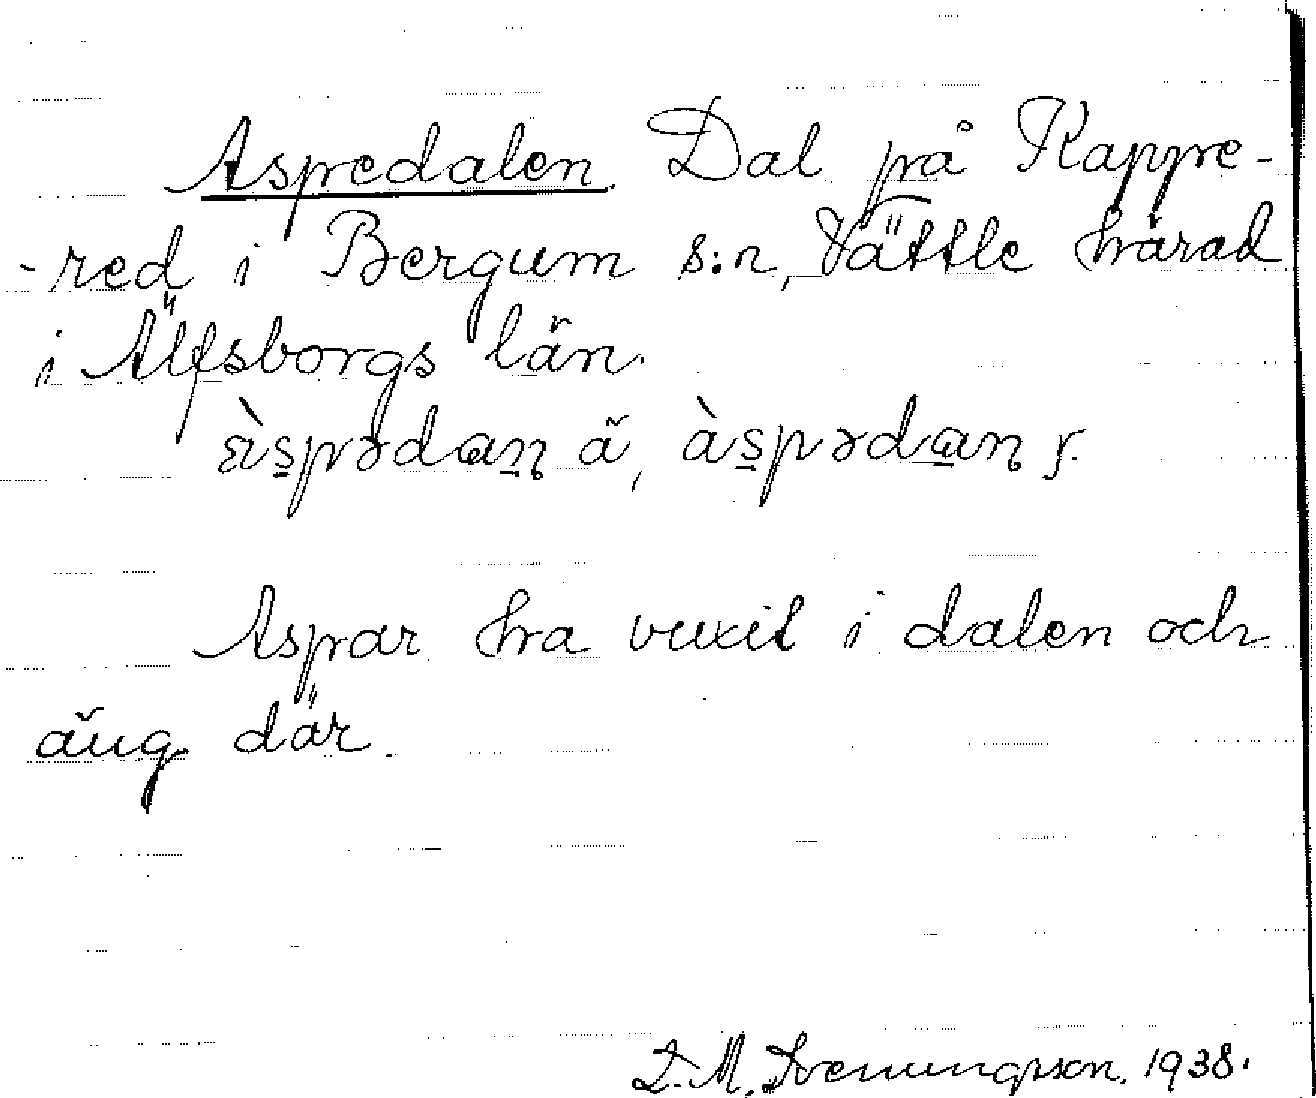 Aspredalen. Dal på Kappre-
-red i Bergum s:n, Vättle härad
i Älfsborgs län.
àspədan ä, àspədan y.
Aspar ha vuxit i dalen och
äng där.
1938.